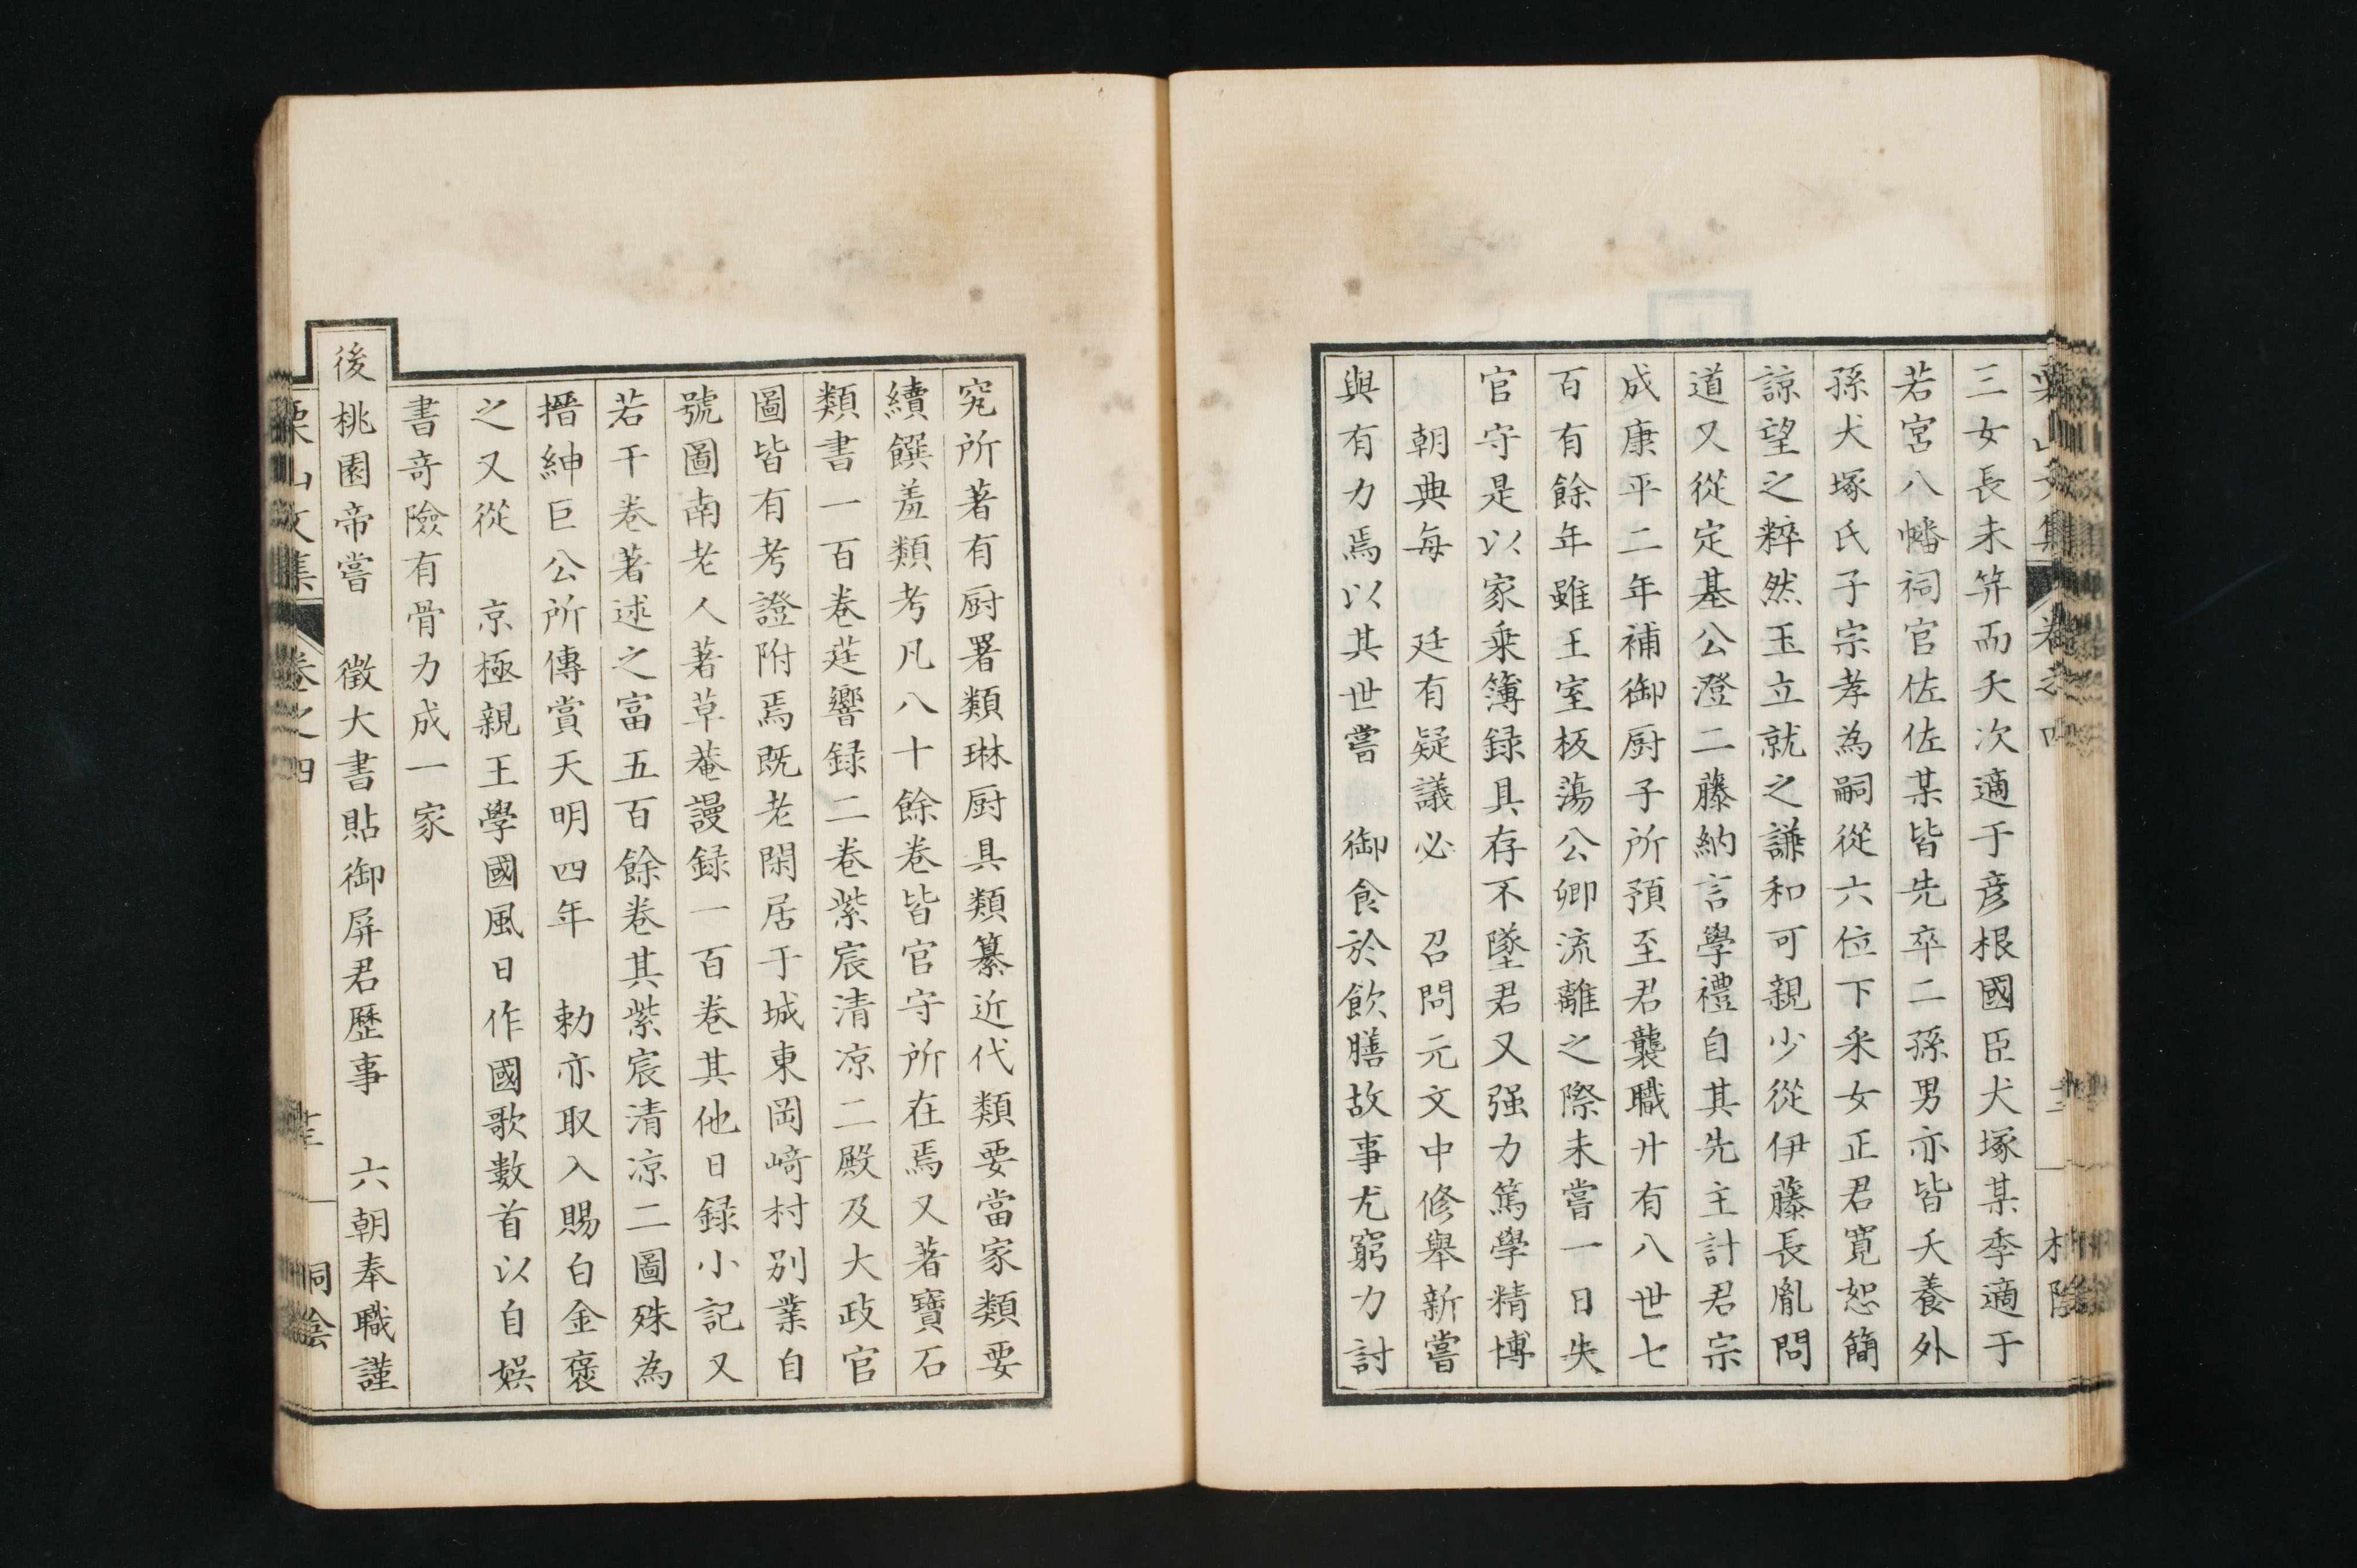 三女長未笄而夭次適于彦根國臣犬塚某季適于
若宮八幡祠官佐佐某皆先卒二孫男亦皆夭養外
孫犬塚氏子宗孝為嗣從六位下采女正君寛恕簡
諒望之粹然玉立就之謙和可親少從伊藤長胤問
道又從定基公澄二藤納言學禮自其先主計君宗
成康平二年補御厨子所預至君襲職廾有八世七
百有餘年雖王室板蕩公卿流離之際未嘗一日失
官守是以家乗簿録具存不墜君又强力篤學精博
朝典每　廷有疑議必　召問元文中修舉新嘗
與有力焉以其世嘗　御食於飲膳故事尤窮力討
究所著有厨署類琳厨具類纂近代類要當家類要
續饌羞類考凡八十餘卷皆官守所在焉又著寶石
類書一百卷莛響録二卷紫宸清凉二殿及大政官
圖皆有考證附焉既老閑居于城東岡﨑村别業自
號圖南老人著草菴謾録一百卷其他日録小記又
若干卷著述之富五百餘卷其紫宸清凉二圖殊為
搢紳巨公所傳賞天明四年　勅亦取入賜白金褒
之又從　京極親王學國風日作國歌數首以自娯
書竒險有骨力成一家
後桃園帝嘗　徵大書貼御屏君歷事　六朝奉職謹
栗山文集　卷之四